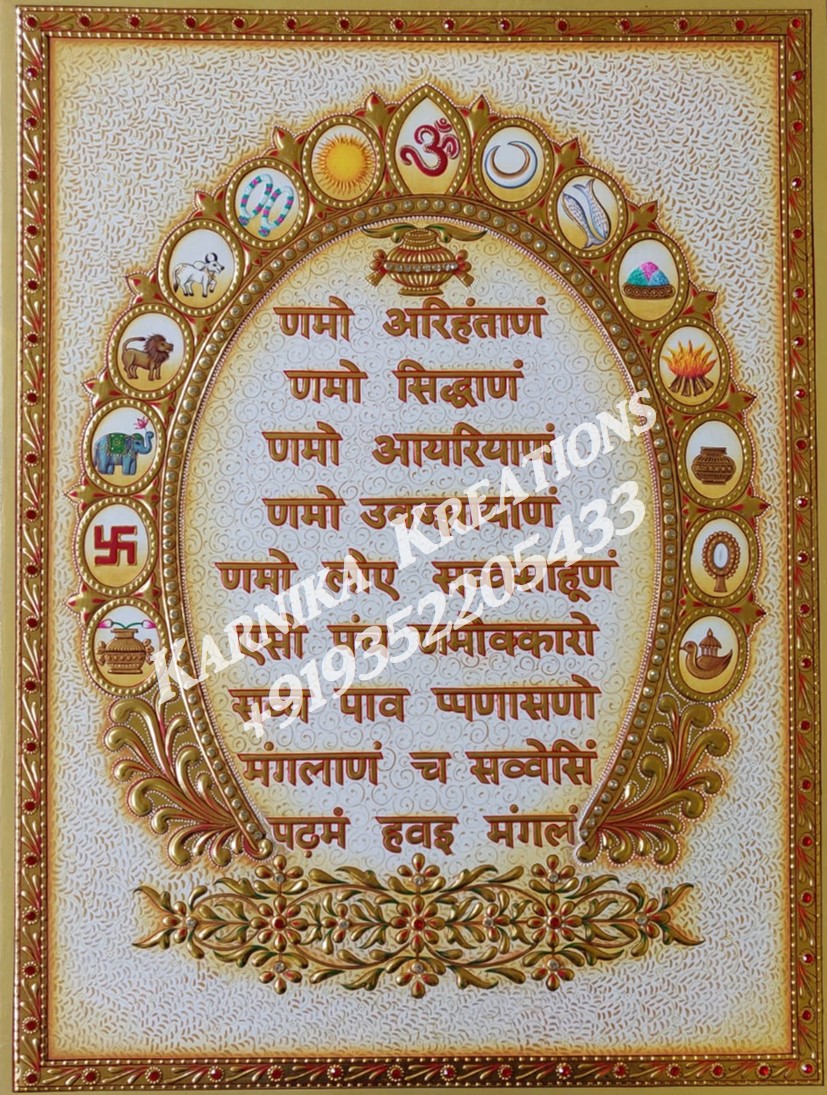 ॐ
णमो अरिहंताणं
णमो सिद्धाणं
णमो आयरियाणं
णमो
णमो लोए सव्वसाहूणं
एसो णमोक्कारो
पाव प्पणासणो
मंगलाणं च सव्वेसिं
पढमं हवइ मंगलं
KARNIKA KREATIONS
+919352205433